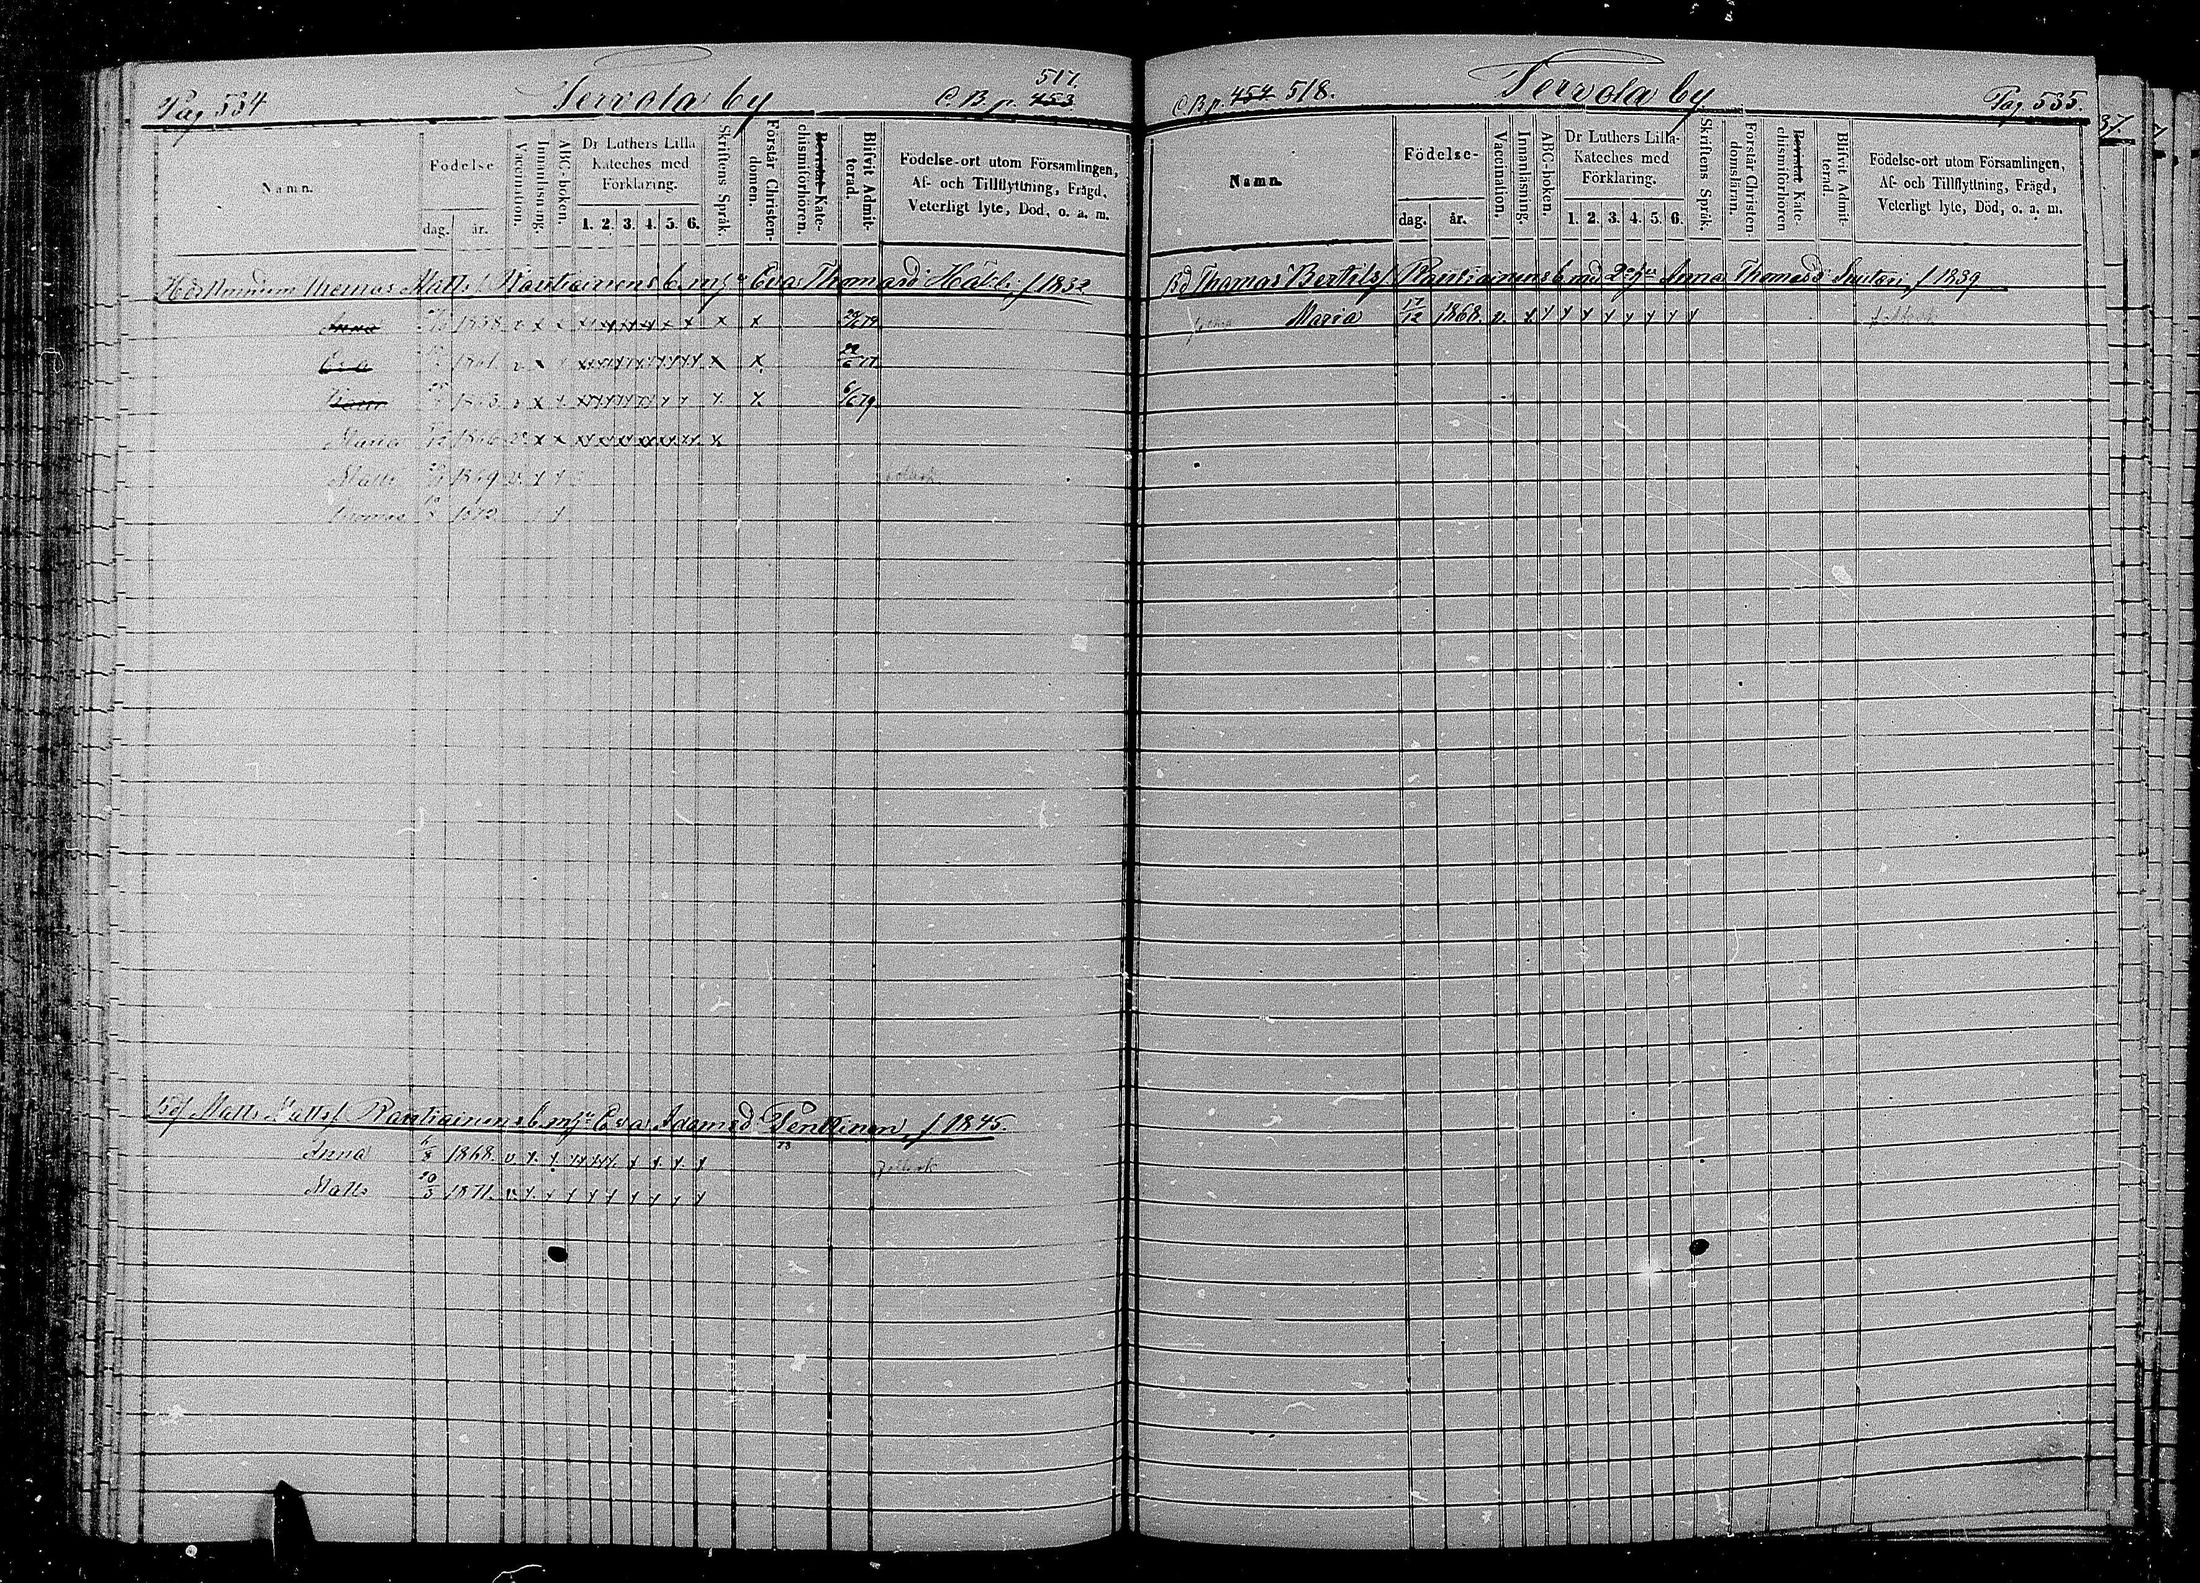 Pag 534 Tervola by C. B. p. 453 517.
Namn.
Födelse
dag. år.
Vaccination.
Innanläsning.
ABC-boken.
Dr Luthers Lilla
Kateches med
Förklaring.
1. 2. 3. 4. 5. 6.
Skriftens Språk.
Förstår Christen-
domen.
Bevistat Kate-
chismiförhören.
Blifvit Admit-
terad.
Födelse-ort utom Församlingen,
Af- och Tillflyttning, Frägd,
Veterligt lyte, Död, o. a. m.
Thomas Matts Rautiainens b. m. Eva Thomasd f 1832
Anna 1858 v x x x x x x x x x 79
Eva 1861 v x x x x x
x x x x x 6/6 79
Maria v x x x x x x x x x
Matts 1869 v x x
Thomas 1872 x
Matts Mattsf Rautiainens b. m. Eva Adamsd Penttinen f 1845.
Anna 1868. v. x. x. x x x. x x. x. x
Matts 20/3 1871. v. x. x x x x x x x x
C. B. p. 454 518. Tervola by Pag 535.
Namn.
Födelse-
dag. år.
Vaccination.
Innanläsning.
ABC-boken.
Dr Luthers Lilla-
Kateches med
Förklaring.
1. 2. 3. 4. 5. 6.
Skriftens Språk.
Förstår Christen
domslärn.
Bevistat Kate-
chismiförhören
Blifvit Admit-
terad.
Födelse-ort utom Församlingen,
Af- och Tillflyttning, Frägd,
Veterligt lyte, Död, o. a. m.
Bd Thomas Bertilsf Rautiainens b. med 2 Anna Thomasd f 1839
Maria 17/12 1868. v. x x x x x x x x x
37.